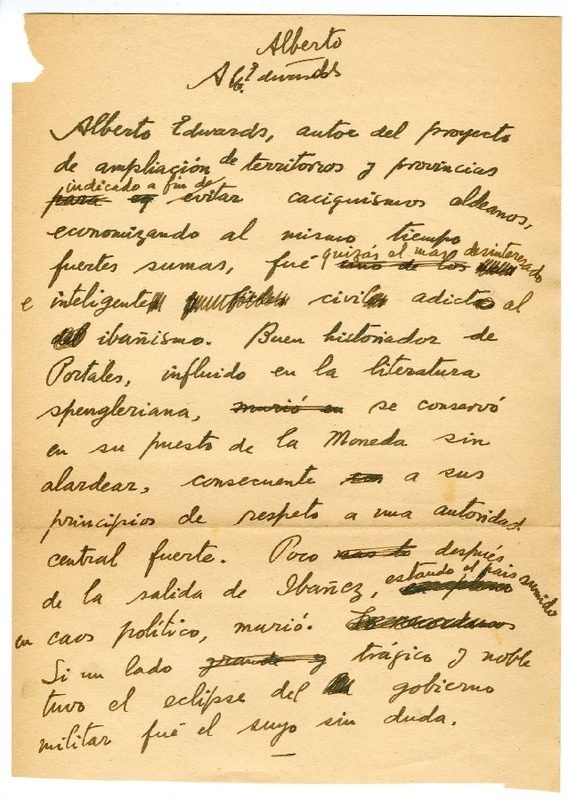 Alberto
Edwards
Alberto Edwards, autor del proyecto
de ampliación de territorios y provincias
indicado a fin de
para evitar caciquismos aldeanos,
economizando al mismo tiempo
quizás el más desinteresado
fuertes sumas, fué uno de los
e inteligente civil adicto al
ibañismo. Buen historiador de
Portales, influido en la literatura
spengleriana, murió en se conservó
en su puesto de la Moneda sin
alardear, consecuente con a sus
principios de respeto a una autoridad
central fuerte. Poco después
estando el país sumido
de la salida de Ibañez,
en caos político, murió.
Si un lado grande y trágico y noble
tuvo el eclipse del gobierno
militar fué el suyo sin duda.